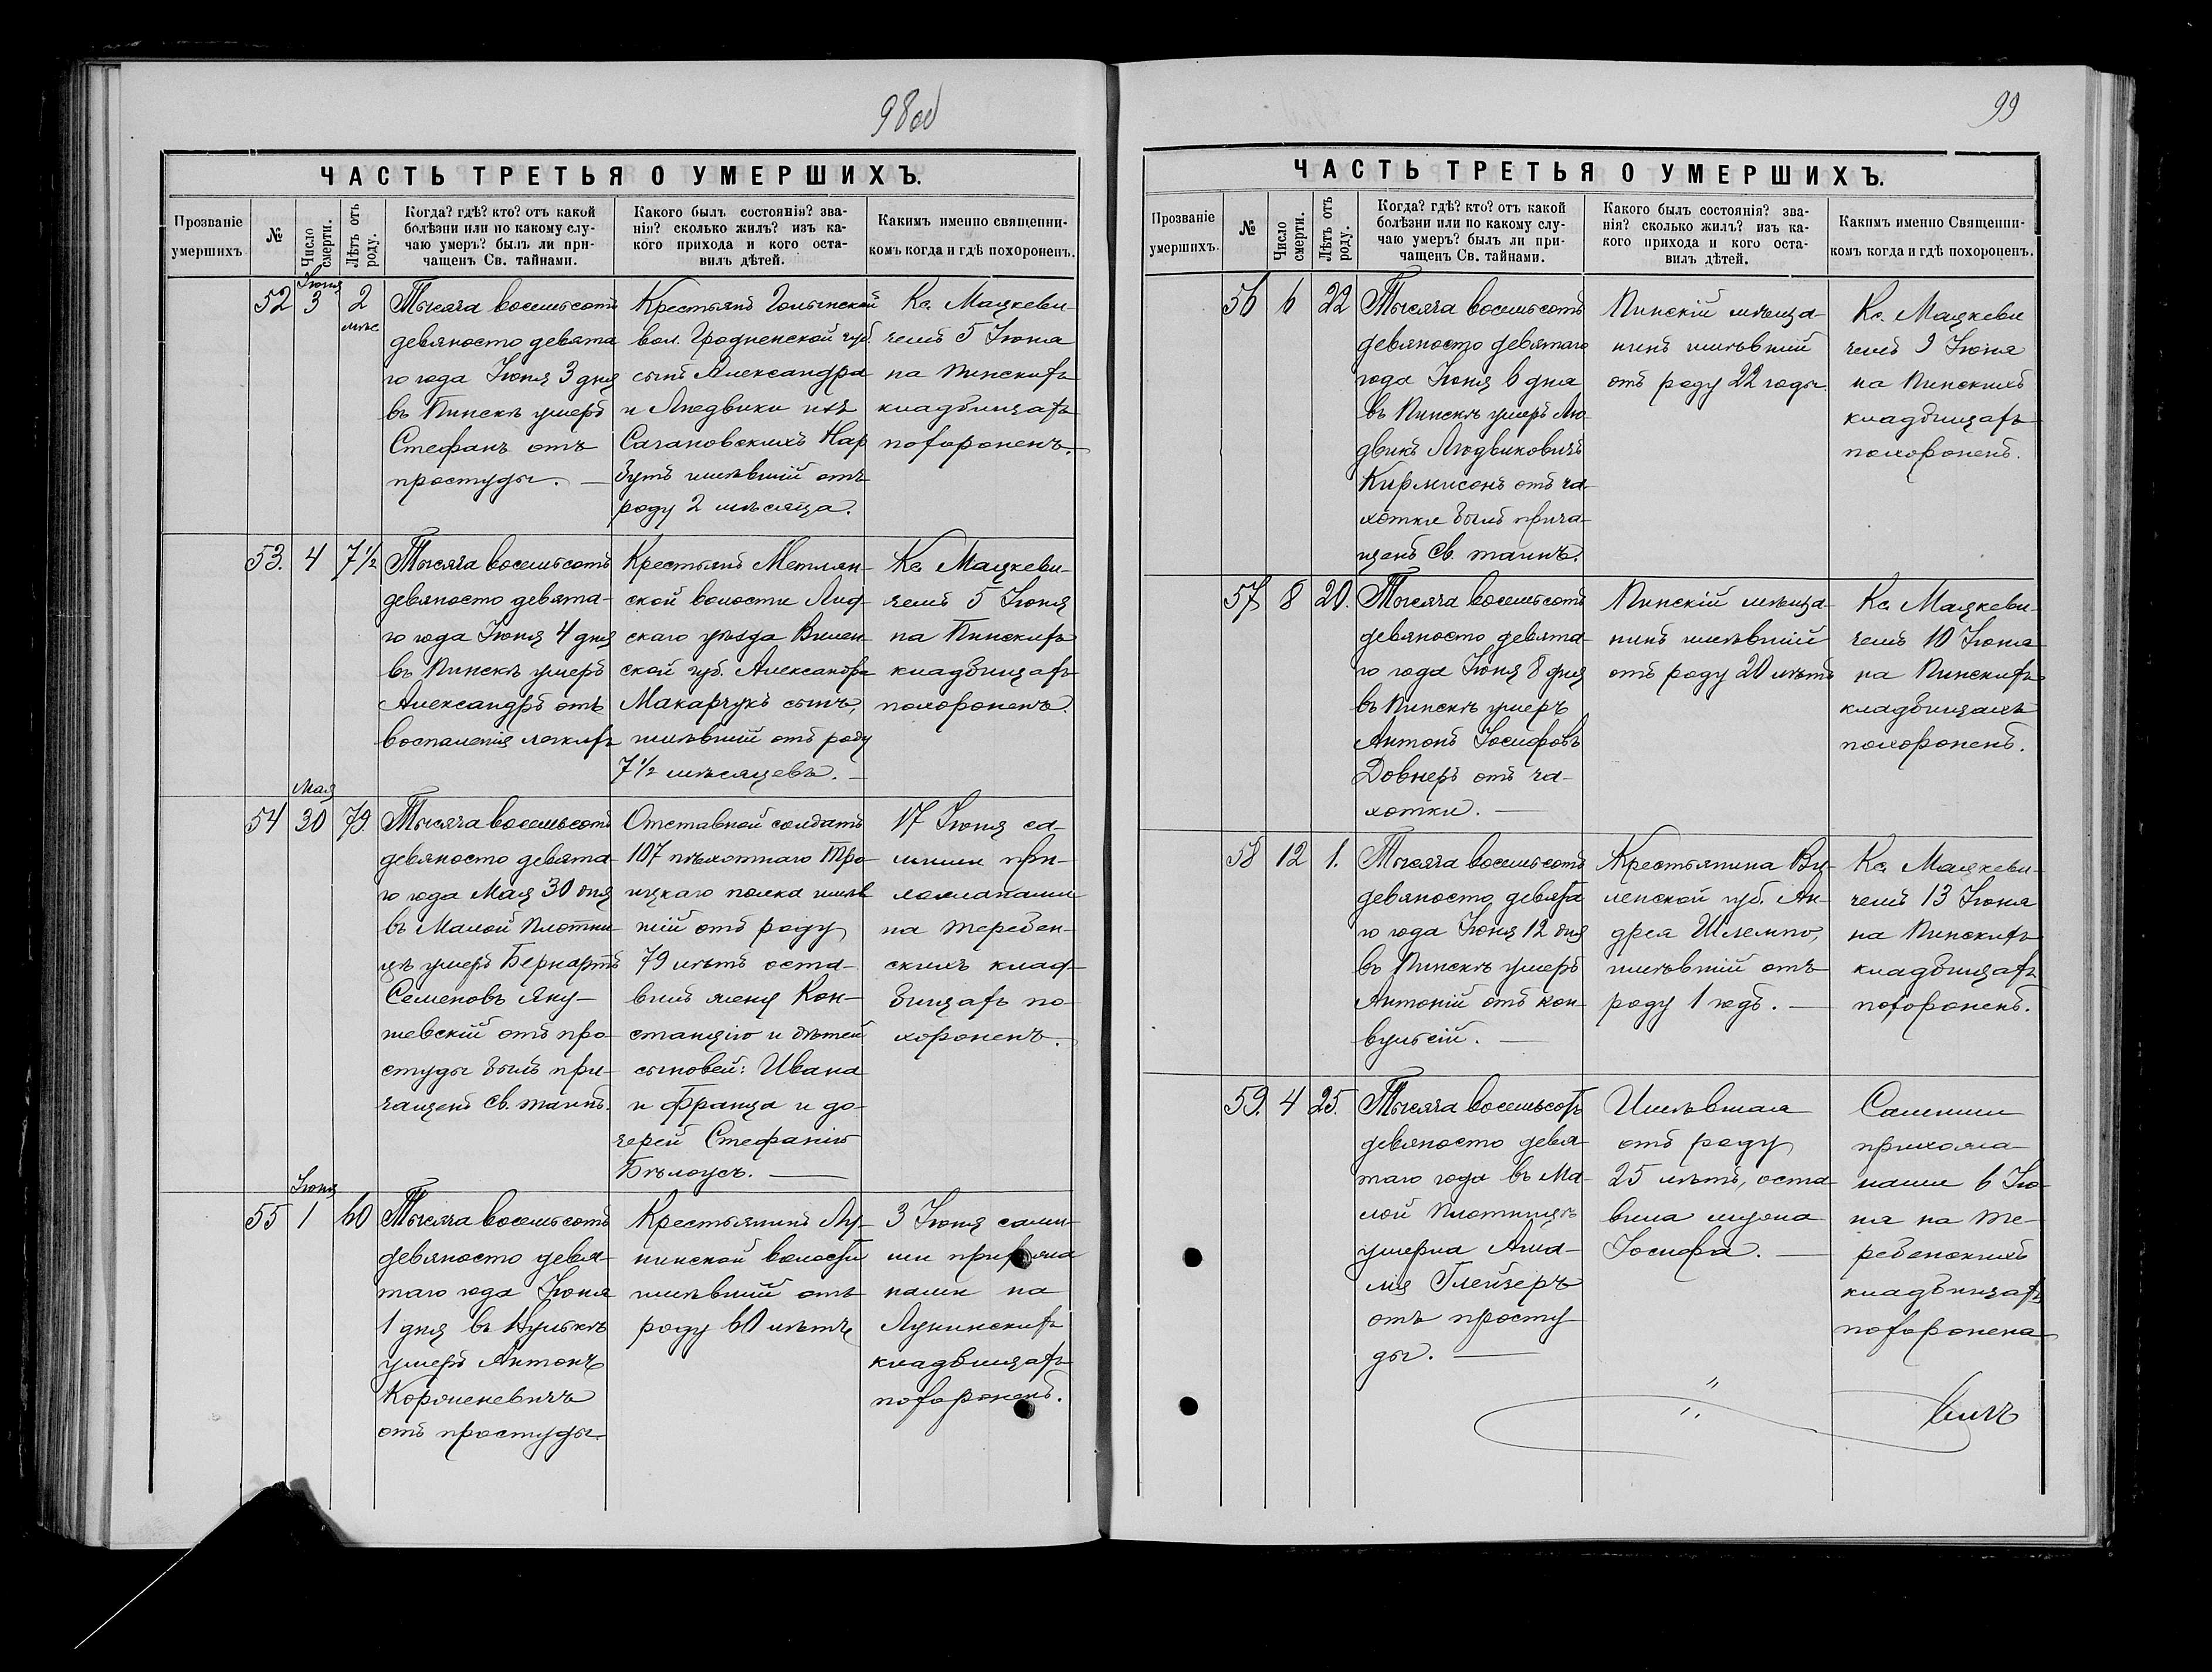 98 об
ЧАСТЬ ТРЕТЬЯ О УМЕРШИХЪ.
Прозваніе
умершихъ
№
Число
смерти.
Лѣтъ отъ
роду.
Когда? гдѣ? кто? отъ какой
болѣзни или по какому слу-
чаю умеръ? былъ ли при-
чащенъ Св. тайнами.
Какого былъ состоянія? зва-
нія? сколько жилъ? изъ ка-
кого прихода и кого оста-
вилъ дѣтей.
Какимъ именно священни-
комъ когда и гдѣ похороненъ.
52
Іюня
3
2
мѣс
Тысяча восемьсотъ
девяносто девята
го года Іюня 3 дня
въ Пинскѣ умеръ
Стефанъ отъ
простуды. —
Крестьянъ
вол. Гродненской губ.
сынъ Александра
и Людвики изъ
Сачановскихъ Нар
бутъ имѣвшій отъ
роду 2 мѣсяца.
Кс. Мацкеви-
чемъ 5 Іюня
на Пинскихъ
кладбищахъ
похороненъ.
53.
4
7 1/2
Тысяча восемьсотъ
девяносто девята-
го года Іюня 4 дня
въ Пинскѣ умеръ
Александръ отъ
воспаленія легкихъ
Крестьянъ Метлян-
ской волости Лид-
скаго уѣзда Вилен-
ской губ. Александра
Макарчукъ сынъ,
имѣвшій отъ роду
7 1/2 мѣсяцевъ. —
Кс. Мацкеви-
чемъ 5 Іюня
на Пинскихъ
кладбищахъ
похороненъ.
54
Мая
30
79
Тысяча восемьсотъ
девяносто девята-
го года Мая 30 дня
въ Малой Плотни-
цѣ умеръ Бернартъ
Семеновъ Яну-
шевскій отъ про-
студы былъ при-
чащенъ Св. таинъ.
Отставной солдатъ
107 пѣхотнаго Тро-
ицкаго полка имѣв
шій отъ роду
79 лѣтъ оста-
вилъ жену Кон-
станцію и дѣтей
сыновей: Ивана
и Франца и до-
черей Стефанію
Бѣлоусъ. —
17 Іюня са-
мими при-
хожанами
на Теребен-
скихъ клад-
бищахъ по-
хороненъ.
55
Іюня
1
60
Тысяча восемьсотъ
девяносто девя-
таго года Іюня
1 дня въ
умеръ Антонъ
Корженевичъ
отъ простуды.
Крестьянинъ Лу-
нинской волости
имѣвшій отъ
роду 60 лѣтъ
3 Іюня сами-
ми прихожа
нами на
Лунинскихъ
кладбищахъ
похороненъ.
99
ЧАСТЬ ТРЕТЬЯ О УМЕРШИХЪ.
Прозваніе
умершихъ.
№
Число
смерти.
Лѣтъ отъ
роду.
Когда? гдѣ? кто? отъ какой
болѣзни или по какому слу-
чаю умеръ? былъ ли при-
чащенъ Св. тайнами.
Какого былъ состоянія? зва-
нія? сколько жилъ? изъ ка-
кого прихода и кого оста-
вилъ дѣтей.
Какимъ именно Священни-
комъ когда и гдѣ похороненъ.
56
6
22
Тысяча восемьсотъ
девяносто девятаго
года Іюня 6 дня
въ Пинскѣ умеръ Лю-
двикъ Людвиковичъ
Кирмисонъ отъ ча-
хотки былъ прича-
щенъ Св. таинъ.
Пинскій мѣща-
нинъ имѣвшій
отъ роду 22 годы
Кс. Мацкеви
чемъ 9 Іюня
на Пинскихъ
кладбищахъ
похороненъ.
57
8
20.
Тысяча восемьсотъ
девяносто девята-
го года Іюня 8 дня
въ Пинскѣ умеръ
Антонъ Іосифовъ
Довнеръ отъ ча-
хотки. —
Пинскій мѣща-
нинъ имѣвшій
отъ роду 20 лѣтъ
Кс. Мацкеви-
чемъ 10 Іюня
на Пинскихъ
кладбищахъ
похороненъ.
58
12
1.
Тысяча восемьсотъ
девяносто девята
го года Іюня 12 дня
въ Пинскѣ умеръ
Антоній отъ кон-
вульсій. —
Крестьянина Ви-
ленской губ. Ан-
дрея Шлемпо,
имѣвшій отъ
роду 1 годъ. —
Кс. Мацкеви-
чемъ 13 Іюня
на Пинскихъ
кладбищахъ
похороненъ.
59.
4
25.
Тысяча восемьсотъ
девяносто девя-
таго года въ Ма-
лой Плотницѣ
умерла Ама-
лія Глейзеръ
отъ просту-
ды. —
Имѣвшая
отъ роду
25 лѣтъ, оста-
вила мужа
Іосифа. —
Самими
прихожа-
нами 6 Ію-
ня на Те-
ребенскихъ
кладбищахъ
похоронена